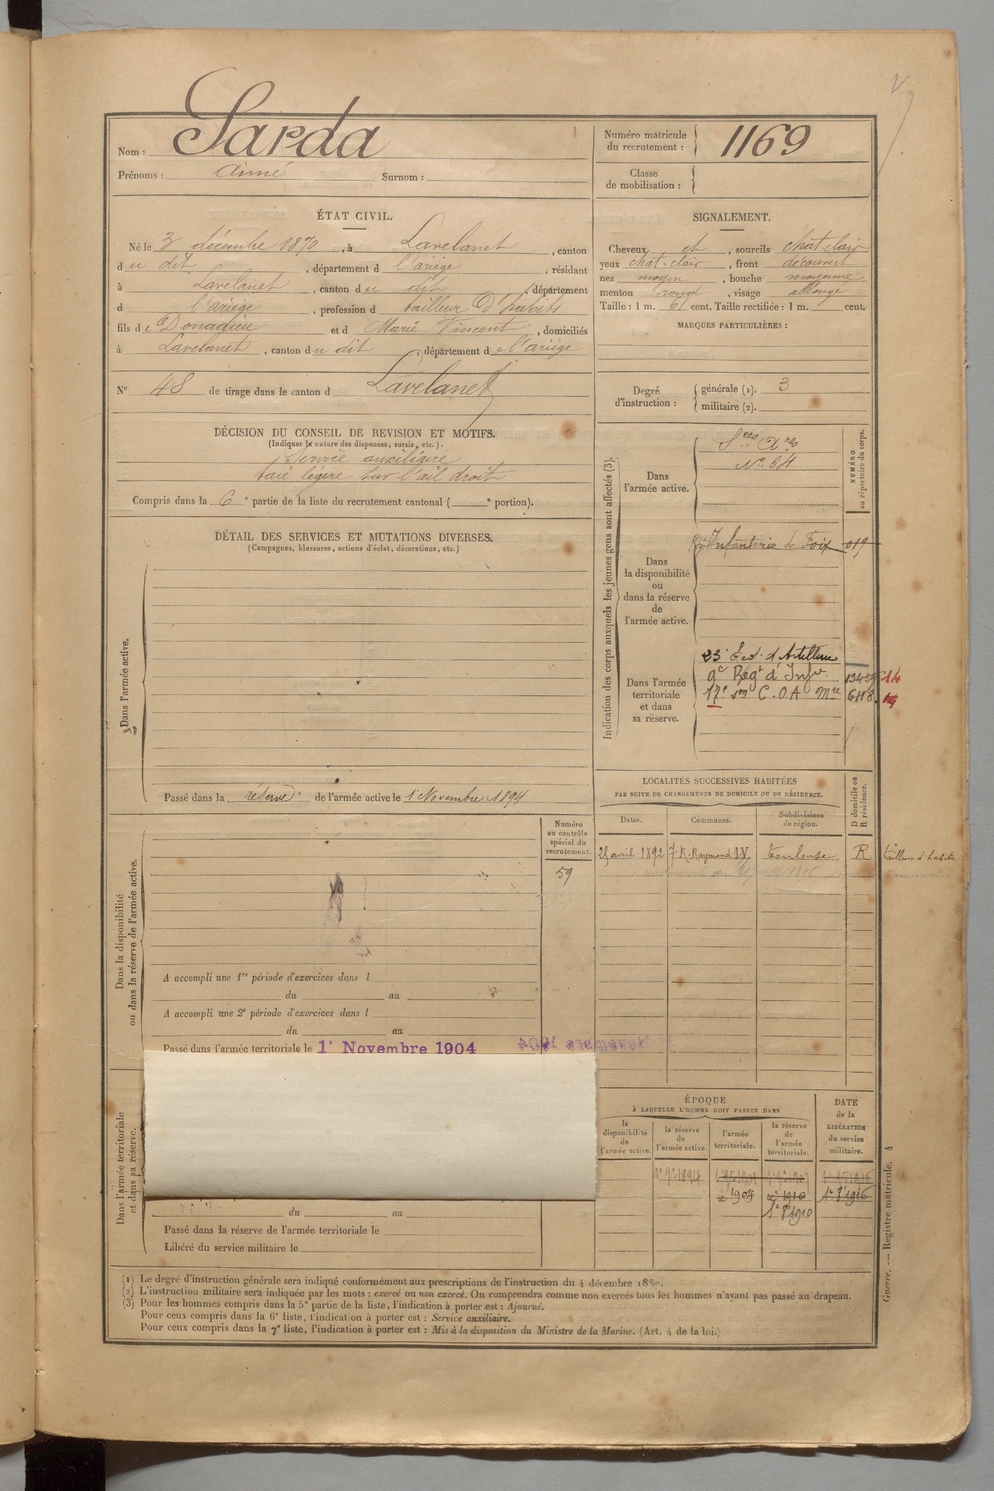 Nom : Sarda
Prénoms : Aimé Surnom :
Numéro matricule du recrutement : 1169
Classe de mobilisation :
ÉTAT CIVIL.
Né le 3 décembre 1870, à Lavelanet, canton
du dit, département d l'ariège, résidant
à Lavelanet, canton du dit, département
d l'ariège, profession d tailleur d'habits
fils de Donadieu et d Marie Vincent, domiciliés
à Lavelanet, canton du dit, département de l'ariège
N° 48 de tirage dans le canton d Lavelanet
DÉCISION DU CONSEIL DE REVISION ET MOTIFS.
(Indiquer la nature des dispenses, sursis, etc.).
Service auxiliaire
taie légère sur l'œil droit
Compris dans la 6e partie de la liste du recrutement cantonal ( e portion).
SIGNALEMENT.
Cheveux et, sourcils chat-clair
yeux chat-clair, front découvert
nez moyen, bouche moyenne
menton rond, visage allongé
Taille : 1 m. 61 cent. Taille rectifiée : 1 m. cent.
MARQUES PARTICULIÈRES :
Degré d'instruction : générale (1). 3
militaire (2).
DÉTAIL DES SERVICES ET MUTATIONS DIVERSES.
(Campagnes, blessures, actions d'éclat, décorations, etc.)
Dans l'armée active.
Passé dans la réserve de l'armée active le 1 Novembre 1894
Indication des corps auxquels les jeunes gens sont affectés (3).
NUMÉRO au répertoire du corps.
Dans l'armée active.
Sces Ares
No 64
Dans la disponibilité ou dans la réserve de l'armée active.
Infanterie de Foix 019
Dans l'armée territoriale et dans sa réserve.
23e Esc. d'Artillerie
9e Régt d'Infie
17e son C.O.A Mle 6118
LOCALITÉS SUCCESSIVES HABITÉES
PAR SUITE DE CHANGEMENTS DE DOMICILE OU DE RÉSIDENCE.
Dates. Communes. Subdivisions de région. D domicile ou R résidence.
avril 1892 7 R. Raymond IV Toulouse R tailleur d'habits
Dans la disponibilité ou dans la réserve de l'armée active.
Numéro au contrôle spécial du recrutement.
59
A accompli une 1re période d'exercices dans l
du au
A accompli une 2e période d'exercices dans l
du au
Passé dans l'armée territoriale le 1r Novembre 1904
Dans l'armée territoriale et dans sa réserve.
du au
Passé dans la réserve de l'armée territoriale le
Libéré du service militaire le
ÉPOQUE
À LAQUELLE L'HOMME DOIT PASSER DANS
la disponibilité de l'armée active.
la réserve de l'armée active.
l'armée territoriale.
la réserve de l'armée territoriale.
DATE de la LIBÉRATION du service militaire.
1r 9e 1894
1904 1910 1916
1910
(1) Le degré d'instruction générale sera indiqué conformément aux prescriptions de l'instruction du 4 décembre 1889.
(2) L'instruction militaire sera indiquée par les mots : exercé ou non exercé. On comprendra comme non exercés tous les hommes n'ayant pas passé au drapeau.
(3) Pour les hommes compris dans la 5e partie de la liste, l'indication à porter est : Ajourné.
Pour ceux compris dans la 6e liste, l'indication à porter est : Service auxiliaire.
Pour ceux compris dans la 7e liste, l'indication à porter est : Mis à la disposition du Ministre de la Marine. (Art. 4 de la loi.)
Guerre. — Registre matricule. 4